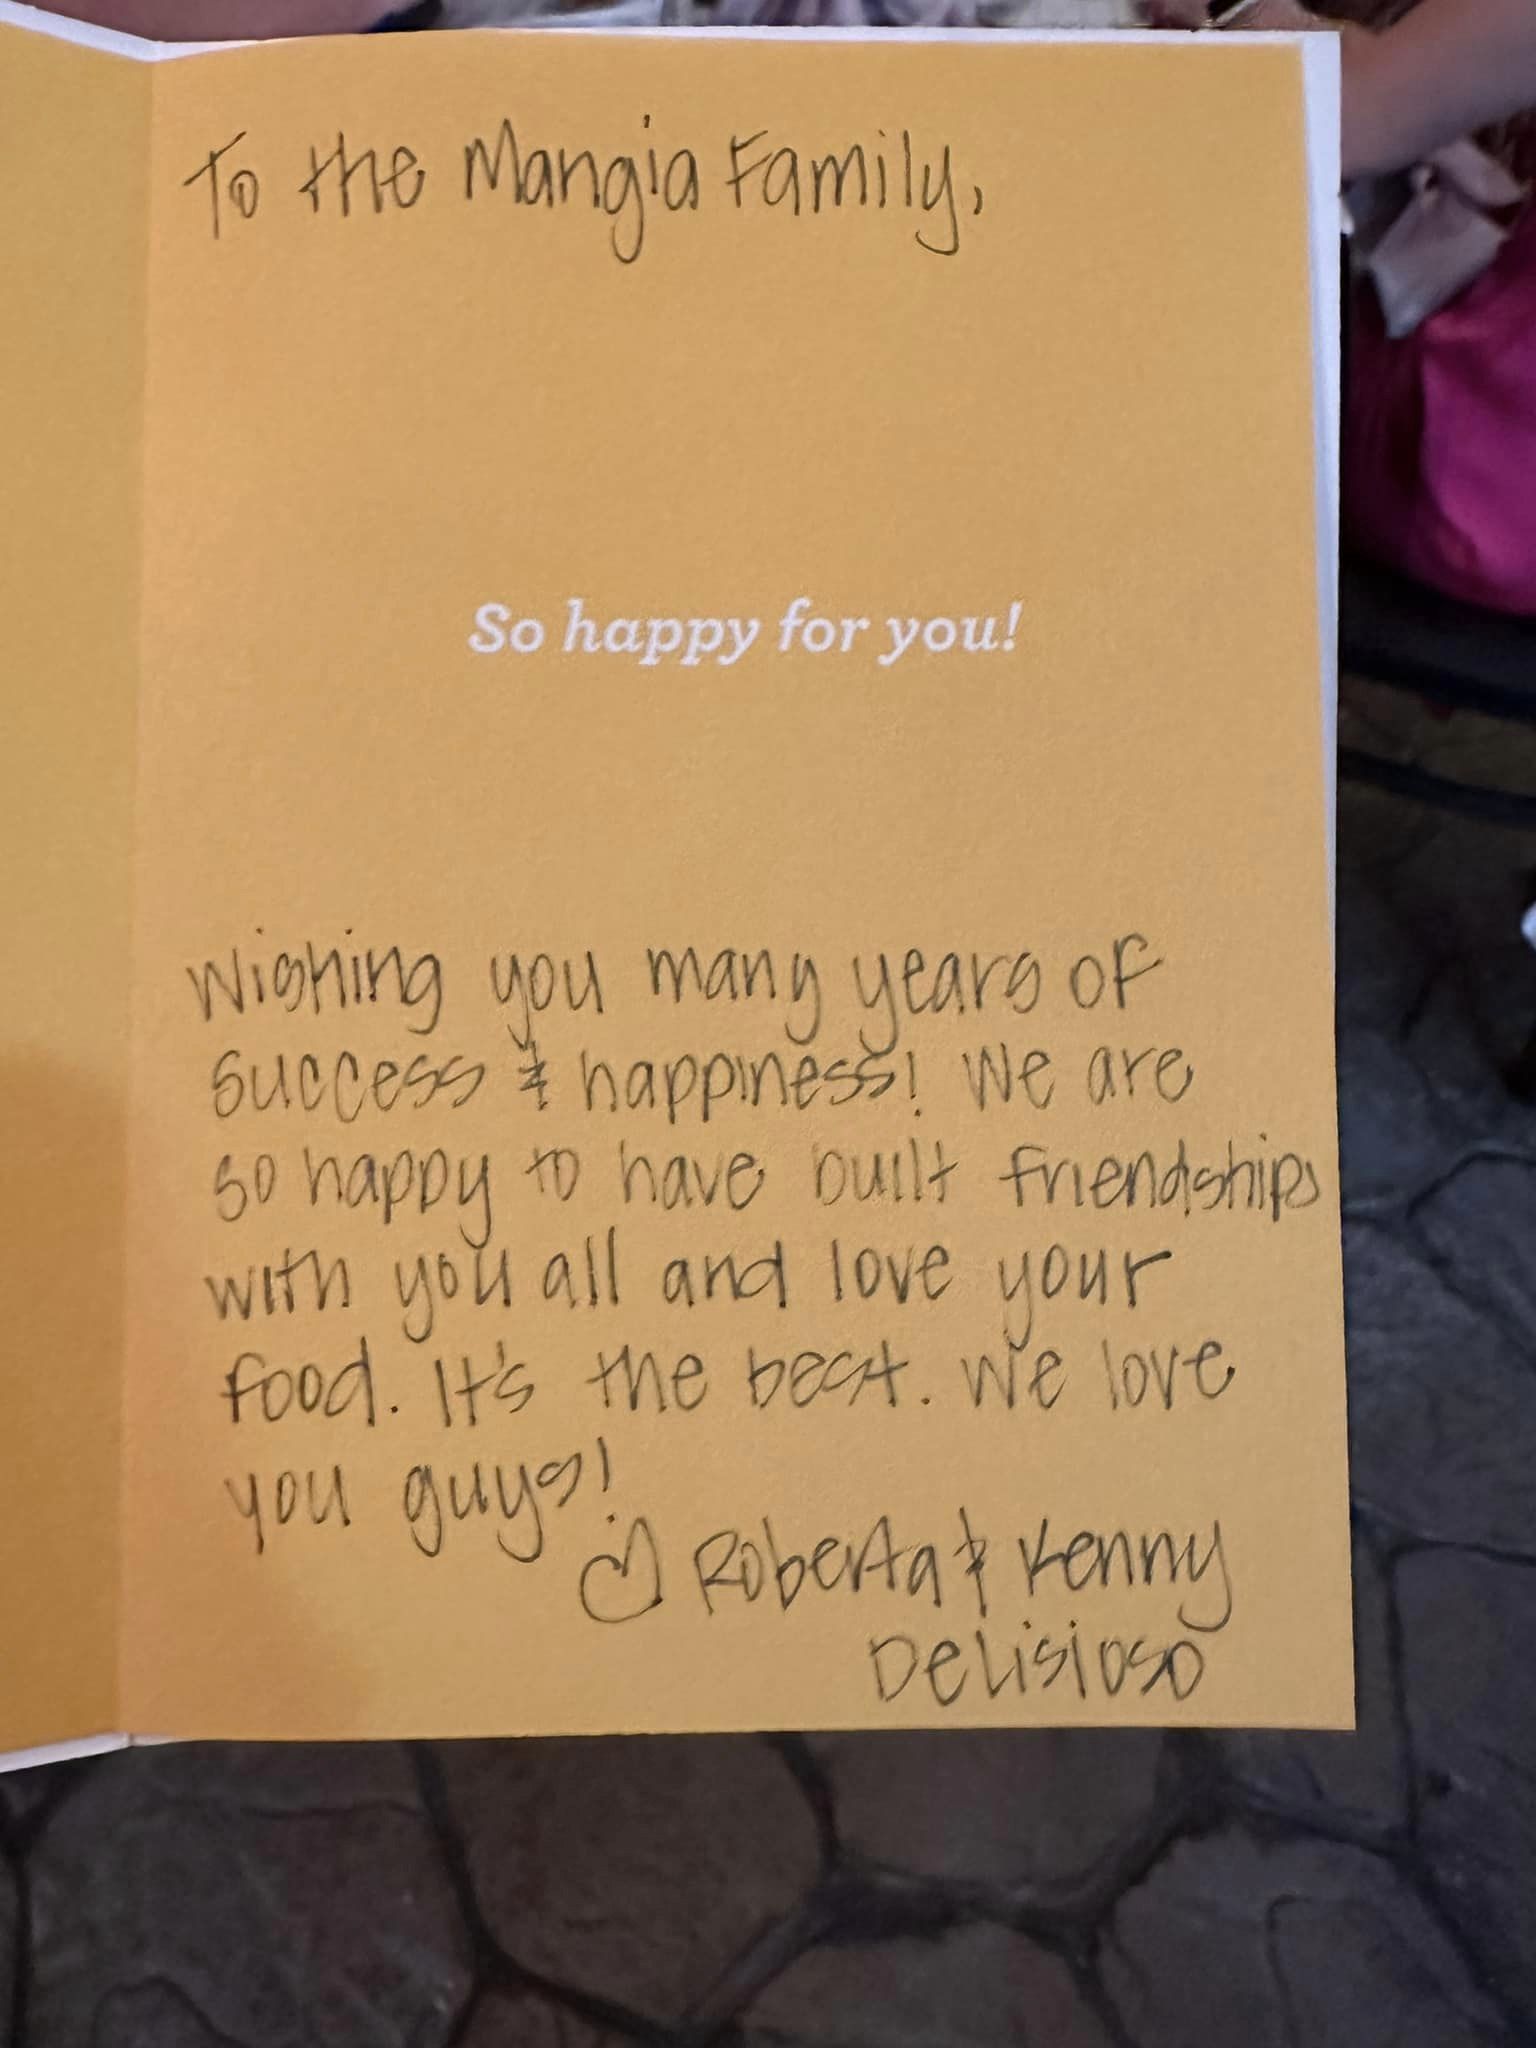 To the Mangia Family,
So happy for you!
Wishing you many years of
success & happiness! We are
so happy to have built friendships
with you all and love your
food. It's the best. We love
you guys!
♡ Roberta & Kenny
Delisioso